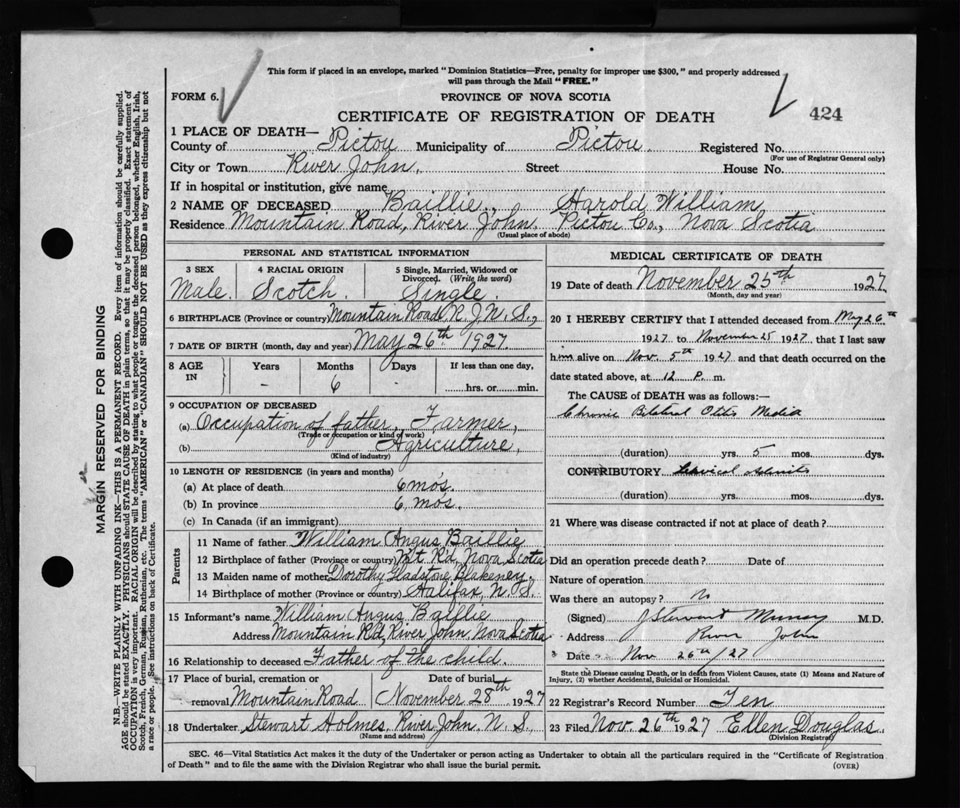 This form if placed in an envelope, marked "Dominion Statistics—Free, penalty for improper use $300," and properly addressed
will pass through the Mail "FREE."
FORM 6.
PROVINCE OF NOVA SCOTIA
CERTIFICATE OF REGISTRATION OF DEATH
424
1 PLACE OF DEATH—
County of Pictou Municipality of Pictou Registered No.
(For use of Registrar General only)
City or Town River John. Street House No.
If in hospital or institution, give name
2 NAME OF DECEASED Baillie, Harold William
Residence Mountain Road, River John, Pictou Co., Nova Scotia
(Usual place of abode)
PERSONAL AND STATISTICAL INFORMATION
3 SEX 4 RACIAL ORIGIN 5 Single, Married, Widowed or
Divorced. (Write the word)
Male. Scotch. Single.
6 BIRTHPLACE (Province or country) Mountain Road, R. J. N. S.,
7 DATE OF BIRTH (month, day and year) May 26th 1927.
8 AGE IN Years Months Days If less than one day,
- 6 - hrs. or min.
9 OCCUPATION OF DECEASED
(a) Occupation of father, Farmer,
(Trade or occupation or kind of work)
(b) Agriculture,
(Kind of industry)
10 LENGTH OF RESIDENCE (in years and months)
(a) At place of death 6 mo's.
(b) In province 6 mo's.
(c) In Canada (if an immigrant)
Parents
11 Name of father William Angus Baillie
12 Birthplace of father (Province or country) Mt. R'd, Nova Scotia
13 Maiden name of mother Dorothy Gladstone Blakeney.
14 Birthplace of mother (Province or country) Halifax, N. S.
15 Informant's name William Angus Baillie
Address Mountain Rd, River John, Nova Scotia
16 Relationship to deceased Father of the child.
17 Place of burial, cremation or Date of burial
removal Mountain Road November 28th 1927
18 Undertaker Stewart Holmes, River John, N. S.
(Name and address)
MEDICAL CERTIFICATE OF DEATH
19 Date of death November 25th 1927
(Month, day and year)
20 I HEREBY CERTIFY that I attended deceased from May 26th
1927 to November 25 1927, that I last saw
him alive on Nov. 5th 1927 and that death occurred on the
date stated above, at 12 P. m.
The CAUSE OF DEATH was as follows:—
Chronic Bilateral Otitis Media
(duration) yrs. 5 mos. dys.
CONTRIBUTORY Cervical Adenitis
(duration) yrs. mos. dys.
21 Where was disease contracted if not at place of death?
Did an operation precede death? Date of
Nature of operation
Was there an autopsy? No
(Signed) J Stewart Murray M.D.
Address River John
Date Nov. 26th/27
State the Disease causing Death, or in death from Violent Causes, state (1) Means and Nature of
Injury, (2) whether Accidental, Suicidal or Homicidal.
22 Registrar's Record Number Ten
23 Filed Nov. 26th 1927 Ellen Douglas.
(Division Registrar)
SEC. 46—Vital Statistics Act makes it the duty of the Undertaker or person acting as Undertaker to obtain all the particulars required in the "Certificate of Registration
of Death" and to file the same with the Division Registrar who shall issue the burial permit.
(OVER)
MARGIN RESERVED FOR BINDING
N.B.—WRITE PLAINLY WITH UNFADING INK—THIS IS A PERMANENT RECORD. Every item of information should be carefully supplied.
AGE should be stated EXACTLY. PHYSICIANS should STATE CAUSE OF DEATH in plain terms, so that it may be properly classified. Exact statement of
OCCUPATION is very important. RACIAL ORIGIN will be described by stating to what people or tongue the deceased person belonged, whether English, Irish,
Scotch, French, German, Russian, Ruthenian, etc. The terms "AMERICAN" or "CANADIAN" SHOULD NOT BE USED as they express citizenship but not
a race or people. See instructions on back of Certificate.